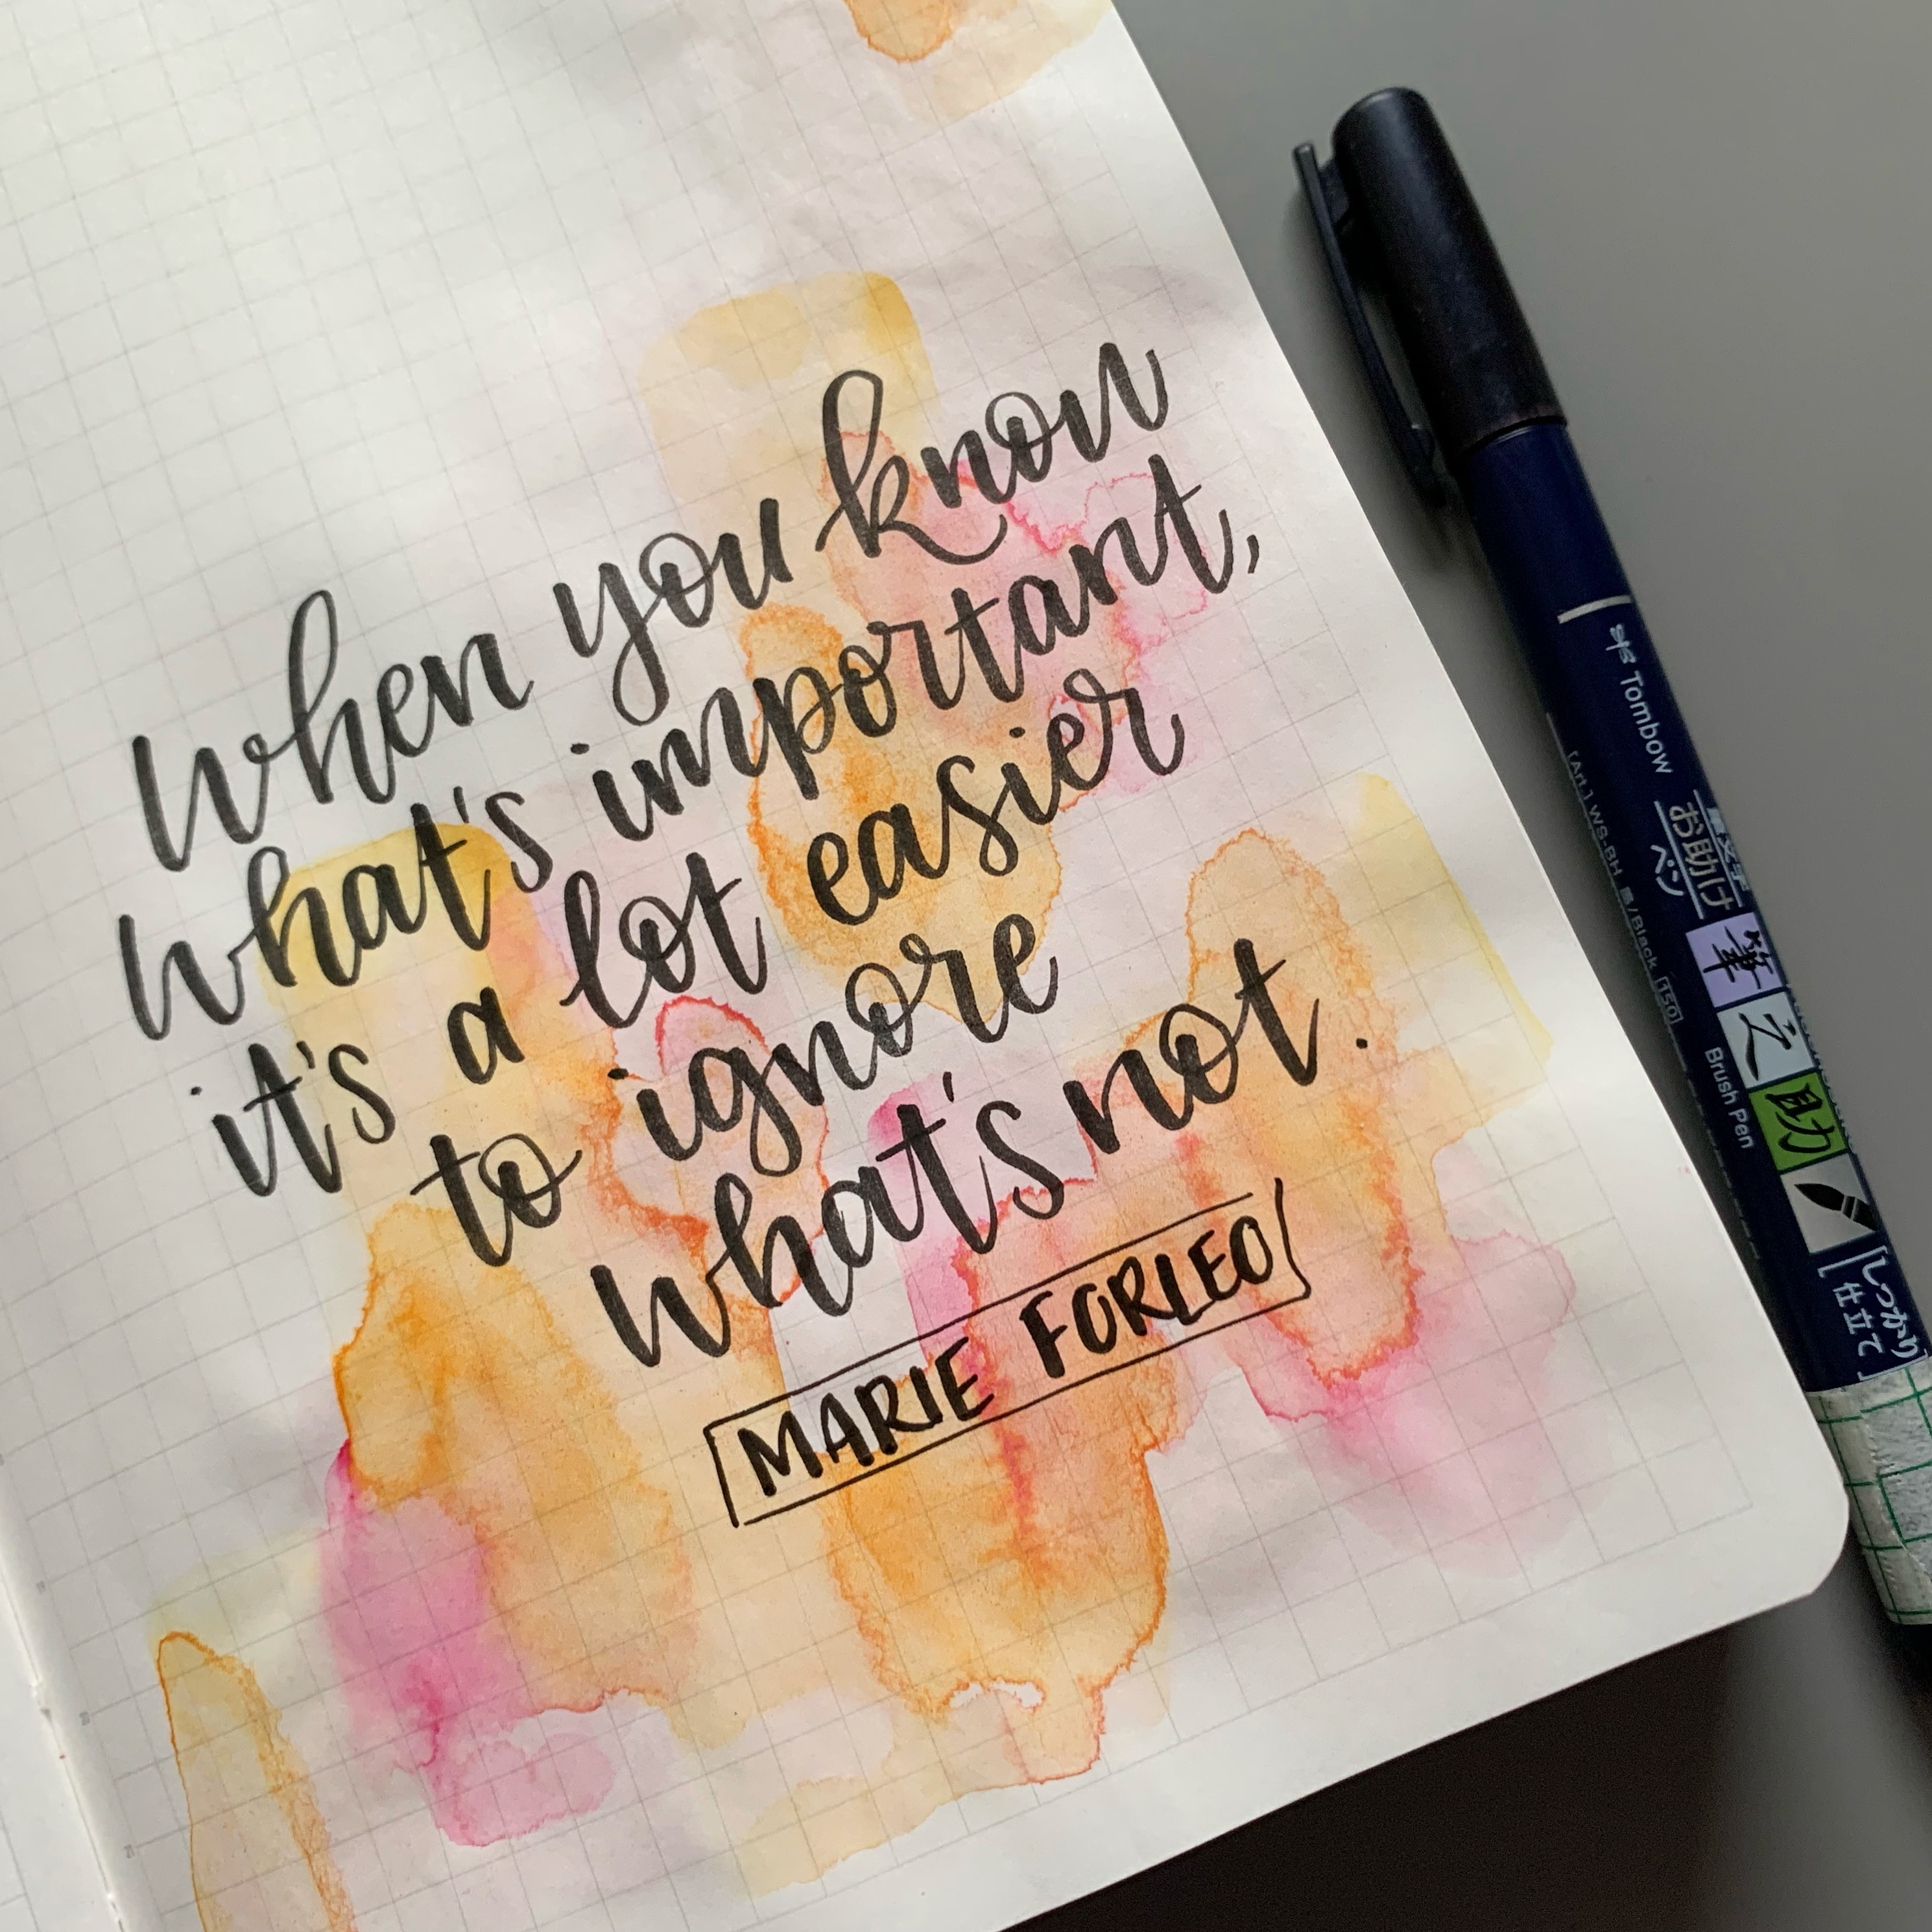 when you know
what's important,
it's a lot easier
to ignore
what's not.
MARIE FORLEO
Tombow
お助け
ペン
[Art.] WS-BH 黒/Black 150
筆之助
Brush Pen
[しっかり
仕立て]